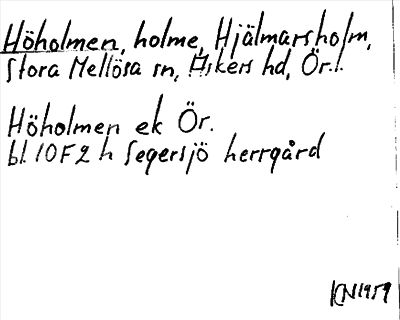 Höholmen, holme, Hjälmarsholm,
Stora Mellösa sn, Askers hd, Ör.l.
Höholmen ek Ör.
bl. 10F2 h Segersjö herrgård
KN1959